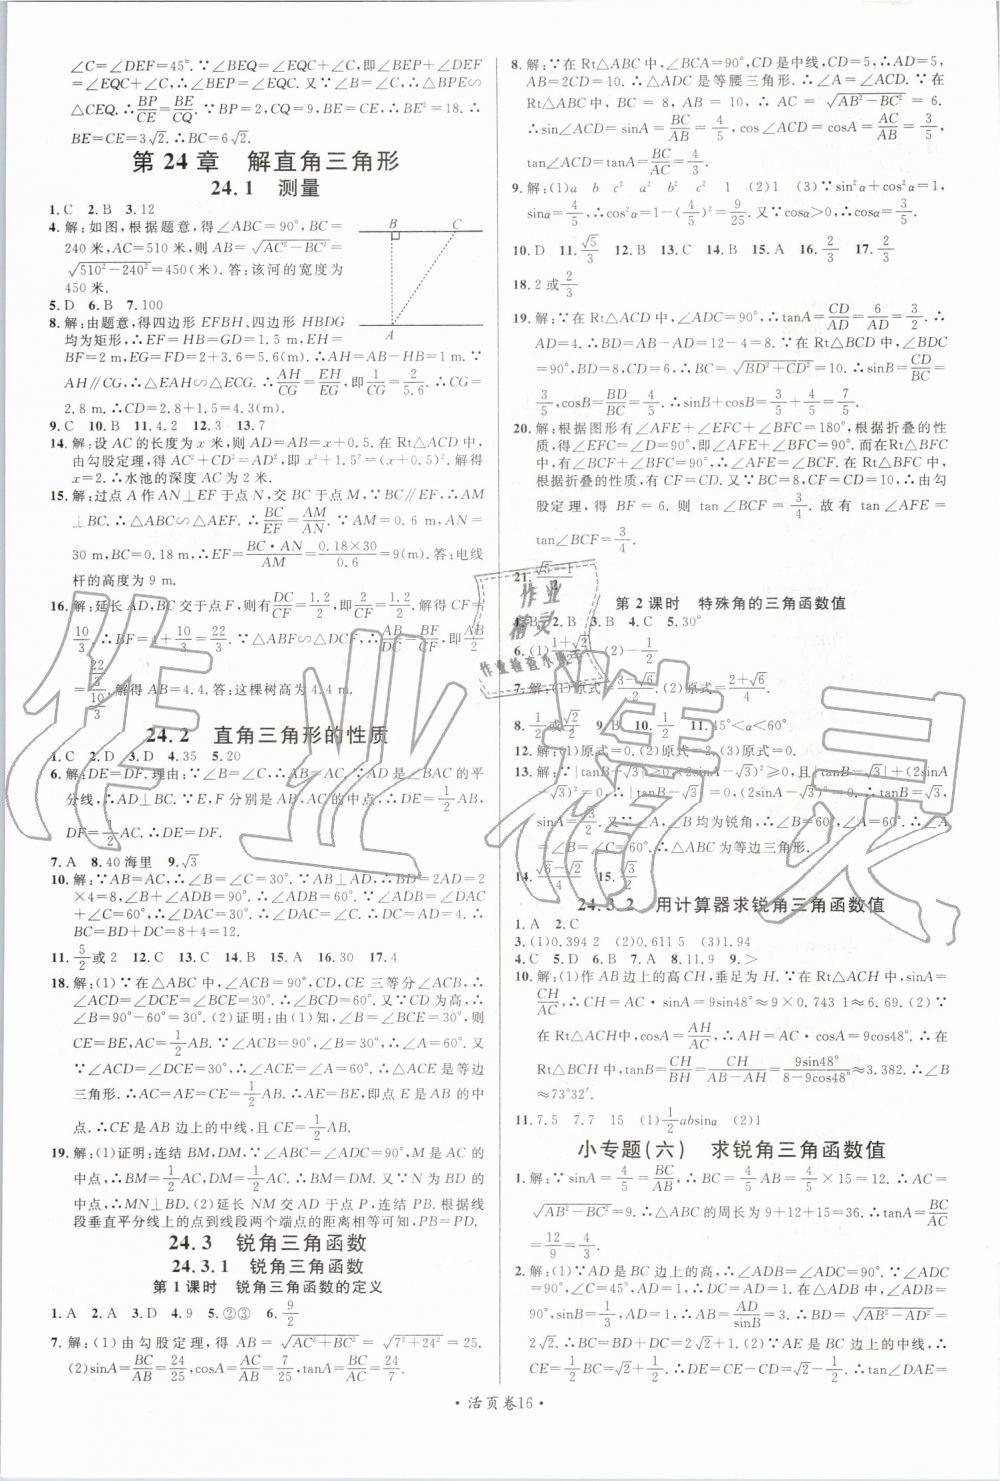 ∠C=∠DEF=45°.∵∠BEQ=∠EQC+∠C,即∠BEP+∠DEF
=∠EQC+∠C,∴∠BEP=∠EQC.又∵∠B=∠C,∴△BPE∽
△CEQ.∴BP/CE=BE/CQ.∵BP=2,CQ=9,BE=CE,∴BE²=18.∴
BE=CE=3√2.∴BC=6√2.
第24章 解直角三角形
24.1 测量
1.C 2.B 3.12
4.解:如图,根据题意,得∠ABC=90°,BC=
240米,AC=510米,则AB=√(AC²-BC²)=
√(510²-240²)=450(米).答:该河的宽度为
450米.
B C A
5.D 6.B 7.100
8.解:由题意,得四边形EFBH、四边形HBDG
均为矩形.∴EF=HB=GD=1.5m,EH=
BF=2m,EG=FD=2+3.6=5.6(m).∴AH=AB-HB=1m.∵
AH∥CG,∴△EAH∽△ECG.∴AH/CG=EH/EG,即1/CG=2/5.6.∴CG=
2.8m.∴CD=2.8+1.5=4.3(m).
9.C 10.B 11.4.2 12.3 13.7
14.解:设AC的长度为x米,则AD=AB=x+0.5.在Rt△ACD中,
由勾股定理,得AC²+CD²=AD²,即x²+1.5²=(x+0.5)².解得
x=2.∴水池的深度AC为2米.
15.解:过点A作AN⊥EF于点N,交BC于点M,∵BC∥EF,∴AM
⊥BC.∴△ABC∽△AEF.∴BC/EF=AM/AN.∵AM=0.6m,AN=
30m,BC=0.18m,∴EF=BC·AN/AM=0.18×30/0.6=9(m).答:电线
杆的高度为9m.
16.解:延长AD,BC交于点F,则有DC/CF=1/2,由此可解得CF=
10/3.∴BF=4+10/3=22/3.∵△ABF∽△DCF,∴AB/DC=BF/CF,即AB/2=
(22/3)/(10/3),解得AB=4.4.答:这棵树高为4.4m.
24.2 直角三角形的性质
1.C 2.D 3.D 4.35 5.20
6.解:DE=DF.理由:∵∠B=∠C,∴AB=AC.∵AD是∠BAC的平
分线,∴AD⊥BC.∵E,F分别是AB,AC的中点,∴DE=1/2AB,
DF=1/2AC.∴DE=DF.
7.A 8.40海里 9.√3
10.解:∵AB=AC,∴∠B=∠C=30°.∵AB⊥AD,∴BD=2AD=2
×4=8,∠B+∠ADB=90°.∴∠ADB=60°.∵∠ADB=∠DAC
+∠C=60°,∴∠DAC=30°.∴∠DAC=∠C.∴DC=AD=4.∴BC
=BD+DC=8+4=12.
11.5/2或2 12.C 13.C 14.B 15.A 16.30 17.4
18.解:(1)∵在△ABC中,∠ACB=90°,CD,CE三等分∠ACB,∴
∠ACD=∠DCE=∠BCE=30°.∴∠BCD=60°.又∵CD为高,∴∠
B=90°-60°=30°.(2)证明:由(1)知,∠B=∠BCE=30°,则
CE=BE,AC=1/2AB.∵∠ACB=90°,∠B=30°,∴∠A=60°.又
∵∠ACD=∠DCE=30°,∴∠ACE=∠A=60°.∴△ACE是等边
三角形.∴AC=AE=CE=1/2AB.∴AE=BE,即点E是AB的中
点.∴CE是AB边上的中线,且CE=1/2AB.
19.解:(1)证明:连结BM,DM,∵∠ABC=∠ADC=90°,M是AC的
中点,∴BM=1/2AC,DM=1/2AC.∴BM=DM.又∵N为BD的
中点,∴MN⊥BD.(2)延长NM交AD于点P,连结PB.根据线
段垂直平分线上的点到线段两个端点的距离相等可知,PB=PD.
24.3 锐角三角函数
24.3.1 锐角三角函数
第1课时 锐角三角函数的定义
1.A 2.A 3.D 4.9 5.②③ 6.9/2
7.解:(1)由勾股定理,得AB=√(AC²+BC²)=√(7²+24²)=25.
(2)sinA=BC/AB=24/25,cosA=AC/AB=7/25,tanA=BC/AC=24/7.
8.解:∵在Rt△ABC中,∠BCA=90°,CD是中线,CD=5,∴AD=5,
AB=2CD=10.∴△ADC是等腰三角形.∴∠A=∠ACD.∵在
Rt△ABC中,BC=8,AB=10,∴AC=√(AB²-BC²)=6.
∴sin∠ACD=sinA=BC/AB=4/5,cos∠ACD=cosA=AC/AB=3/5,
tan∠ACD=tanA=BC/AC=4/3.
9.解:(1)a b c² c² 1 (2)1 (3)∵sin²α+cos²α=1,
sinα=4/5,∴cos²α=1-(4/5)²=9/25.又∵cosα>0,∴cosα=3/5.
10.D 11.√5/3 12.B 13.C 14.B 15.A 16.2/3 17.2/3
18.2或2/3
19.解:∵在Rt△ACD中,∠ADC=90°,∴tanA=CD/AD=6/AD=3/2.∴
AD=4.∴BD=AB-AD=12-4=8.∵在Rt△BCD中,∠BDC
=90°,BD=8,CD=6,∴BC=√(BD²+CD²)=10.∴sinB=CD/BC=
3/5,cosB=BD/BC=4/5.∴sinB+cosB=3/5+4/5=7/5.
20.解:根据图形有∠AFE+∠EFC+∠BFC=180°,根据折叠的性
质,得∠EFC=∠D=90°,即∠AFE+∠BFC=90°.而在Rt△BFC
中,有∠BCF+∠BFC=90°,∴∠AFE=∠BCF.在Rt△BFC中,
根据折叠的性质,有CF=CD.又∵BC=8,CF=CD=10,由勾
股定理,得BF=6.则tan∠BCF=3/4.故有tan∠AFE=
tan∠BCF=3/4.
21.(√5-1)/2
第2课时 特殊角的三角函数值
1.B 2.B 3.B 4.C 5.30°
6.(1)(1+√2)/2 (2)-1/2
7.解:(1)原式=(3-√6)/3.(2)原式=(2+√6)/4.
8.1/2或√2/2 9.B 10.1/2 11.45°<α<60°
12.解:(1)原式=0.(2)原式=2.(3)原式=0.
13.解:∵|tanB-√3|≥0,(2sinA-√3)²≥0,|tanB-√3|+(2sinA
-√3)²=0,∴|tanB-√3|=0,(2sinA-√3)²=0.∴tanB=√3,
sinA=√3/2.又∵∠A,∠B均为锐角,∴∠B=60°,∠A=60°.∴∠A
=∠B=∠C=60°.∴△ABC为等边三角形.
14.(√6-√2)/4 15.√3/2
24.3.2 用计算器求锐角三角函数值
1.A 2.C
3.(1)0.3942 (2)0.6115 (3)1.94
4.C 5.D 6.B 7.A 8.11.9 9.>
10.解:(1)作AB边上的高CH,垂足为H.∵在Rt△ACH中,sinA=
CH/AC,∴CH=AC·sinA=9sin48°≈9×0.7431≈6.69.(2)∵
在Rt△ACH中,cosA=AH/AC,∴AH=AC·cosA=9cos48°.∴在
Rt△BCH中,tanB=CH/BH=CH/(AB-AH)=9sin48°/(8-9cos48°)≈3.382.∴∠B
≈73°32′.
11.7.5 7.7 15 (1)1/2absinα (2)1
小专题(六) 求锐角三角函数值
1.解:∵sinA=4/5=BC/AB,∴BC=4/5AB=4/5×15=12.∴AC=
√(AB²-BC²)=9.∴△ABC的周长为9+12+15=36.∴tanA=BC/AC=
12/9=4/3.
2.解:(1)∵AD是BC边上的高,∴∠ADB=∠ADC=90°.∵∠ADC
=90°,∠C=45°,AD=1,∴DC=AD=1.∵∠ADB=90°,
sinB=1/3,AD=1,∴AB=AD/sinB=3.∴BD=√(AB²-AD²)=
2√2.∴BC=BD+DC=2√2+1.(2)∵AE是BC边上的中线,∴
CE=1/2BC=√2+1/2.∴DE=CE-CD=√2-1/2.∴tan∠DAE=
·活页卷16·
作业精灵
作业
精灵
作业检查小助手